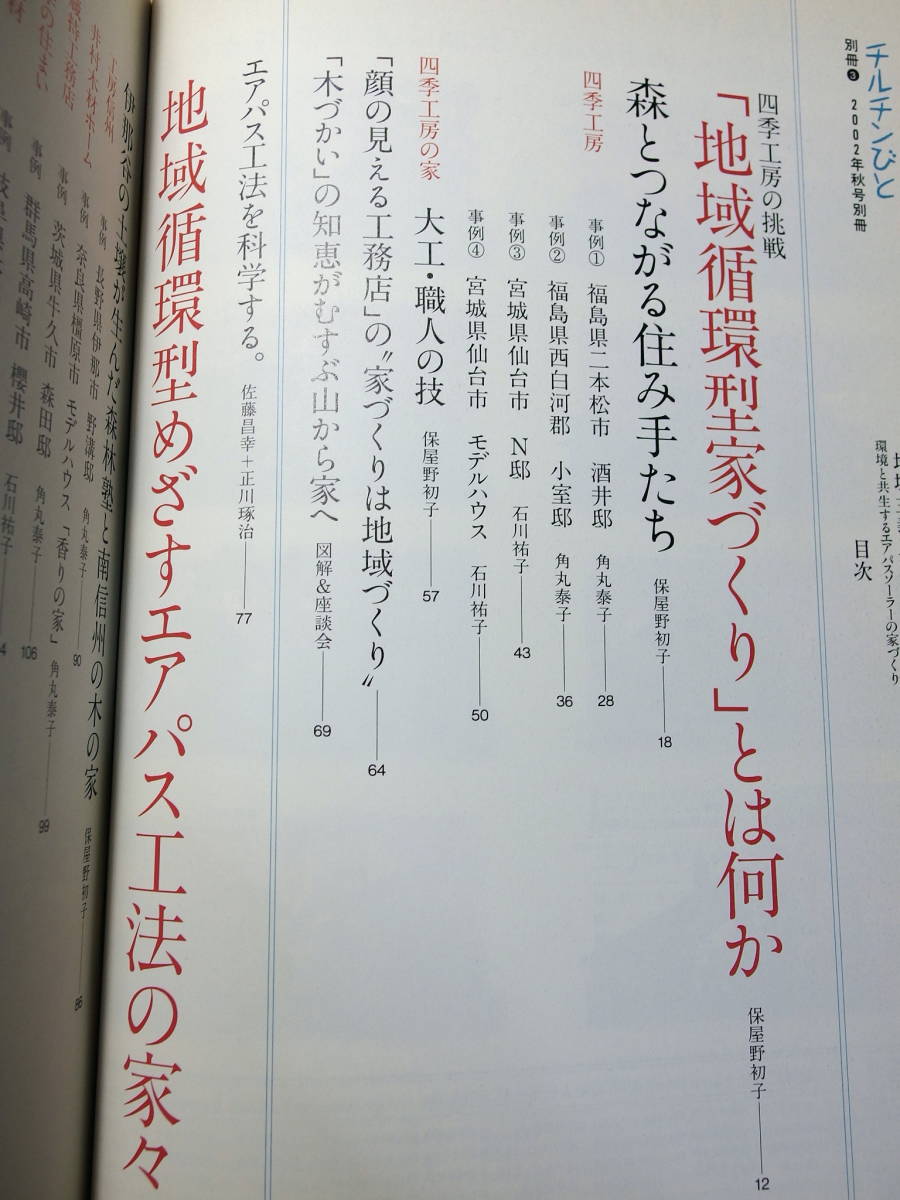 チルチンびと
別冊❸ 2002年秋号別冊
環境と共生するエアパスソーラーの家づくり
目次
四季工房の挑戦
「地域循環型家づくり」とは何か 保屋野初子 12
森とつながる住み手たち 保屋野初子 18
四季工房
事例① 福島県二本松市 酒井邸 角丸泰子 28
事例② 福島県西白河郡 小室邸 角丸泰子 36
事例③ 宮城県仙台市 N邸 石川祐子 43
事例④ 宮城県仙台市 モデルハウス 石川祐子 50
四季工房の家
大工・職人の技 保屋野初子 57
「顔の見える工務店」の〝家づくりは地域づくり〟 64
「木づかい」の知恵がむすぶ山から家へ 図解&座談会 69
エアパス工法を科学する。 佐藤昌幸+正川琢治 77
地域循環型めざすエアパス工法の家々
伊那谷の土壌が生んだ森林塾と南信州の木の家 保屋野初子 86
工房信州
事例 長野県伊那市 野溝邸 角丸泰子 90
井村木材ホーム
事例 奈良県橿原市 モデルハウス「香りの家」 角丸泰子 99
工務店
事例 茨城県牛久市 森田邸 角丸泰子 106
の住まい
事例 群馬県高崎市 櫻井邸 石川祐子
材
事例